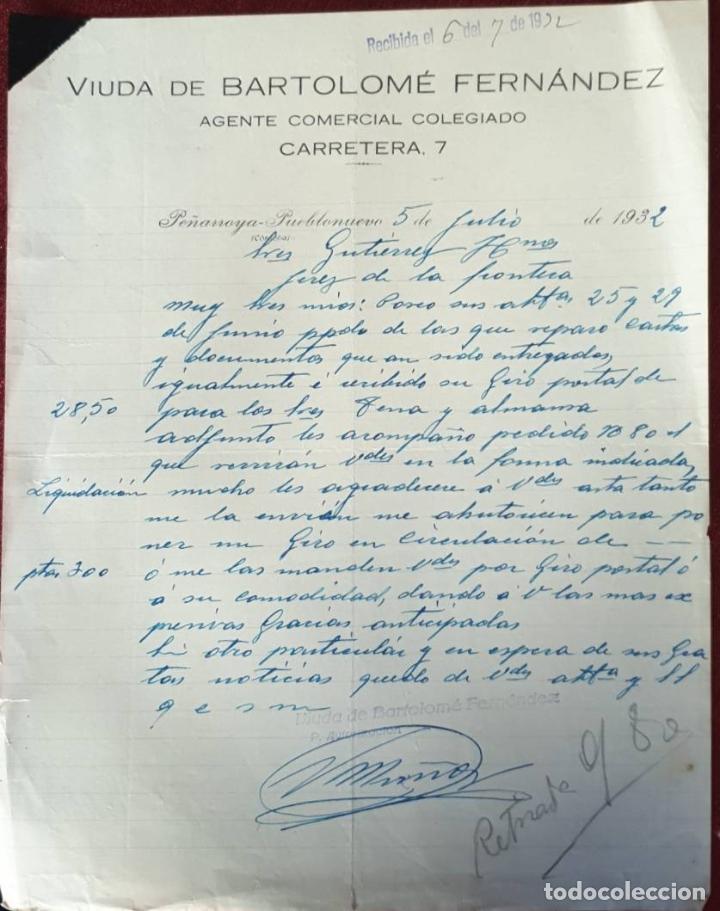 Recibida el 6 del 7 de 1932
VIUDA DE BARTOLOMÉ FERNÁNDEZ
AGENTE COMERCIAL COLEGIADO
CARRETERA, 7
Peñarroya-Pueblonuevo 5 de Julio de 1932
(CÓRDOBA)
Sres Gutiérrez Hnos
Jerez de la frontera
Muy Sres mios: Poseo sus attas 25 y 29
de Junio ppdo de las que reparo cartas
y documentos que an sido entregados,
igualmente é recibido su Giro postal de
28,50 para los Sres Tena y almansa
adjunto les acompaño pedido 80 el
que en la forma indicada,
Liquidación mucho les agradecere á Vdes asta tanto
me la envián me abutoricen para po
ner un Giro en circulación de --
ptas 300 ó me las manden Vdes por Giro postal ó
á su comodidad, dando á V las mas ex
presivas Gracias anticipadas
Sin otro particular y en espera de sus Gra
tas noticias quedo de Vdes atta y SS
q e s m
Viuda de Bartolomé Fernández
P. Autorización
Retirada 9/80
todocoleccion